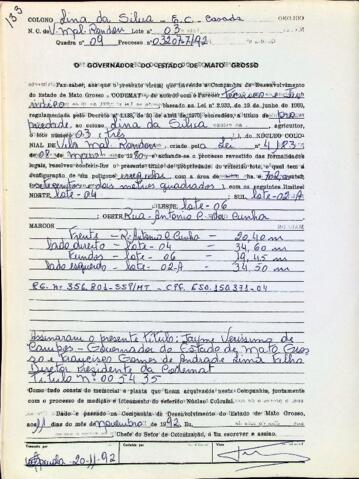 133
COLONO Lina da Silva - E.C. Casada
N. C. de V. Mal. Rondon Lote nº 03
Quadra nº 09 Processo nº 03207-7/92
O GOVERNADOR DO ESTADO DE MATO GROSSO
Faz saber, aos que o presente virem, que havendo a Companhia de Desenvolvimento
do Estado de Mato Grosso - CODEMAT - de acordo com o Parecer técnico e
jurídico baseado na Lei nº 2.933, de 19 de junho de 1969,
regulamentada pelo Decreto nº 1.138, de 30 de abril de 1970, concedido, a título de pro
priedade, ao Lina da Silva, agricultor,
o lote nº 03, três DO NÚCLEO COLO-
NIAL DE Vila Mal. Rondon, criado pela Lei nº 4.183
de 08 de março de 1980, e achando-se o processo revestido das formalidades
legais, resolveu conferir-lhe o presente título de propriedade do referido lote, o qual tem a
configuração de um polígono irregular com a área de ha 702
setecentos e dois metros quadrados, com os seguintes limites:
NORTE lote-04 SUL lote-02-A
LESTE lote-06
OESTE Rua-Antonio P. da Cunha
MARCOS
Frente - R. Antonio P. Cunha - 20,40 m
lado direito - lote - 04 - 34,60 m
Fundos - lote - 06 - 19,45 m
lado esquerdo - lote - 02-A - 34,50 m
RG. nº 356.801-SSP/MT - CPF. 650.150.371-04
Assinaram o presente título: Jayme Veríssimo de
Campos - Governador do Estado de Mato Gros
so e Francisco Gomes de Andrade Lima Filho
Diretor Presidente da Codemat
Título Nº: 005435
Como tudo consta do memorial e planta que ficam arquivados nesta Companhia, juntamente
com o processo de medição e loteamento do referido Núcleo Colonial.
Dado e passado na Companhia de Desenvolvimento do Estado de Mato Grosso,
aos 11 dias do mês de novembro de 1992. Eu,
Chefe do Setor de Colonização, o fiz escrever e assino.
20-11-92